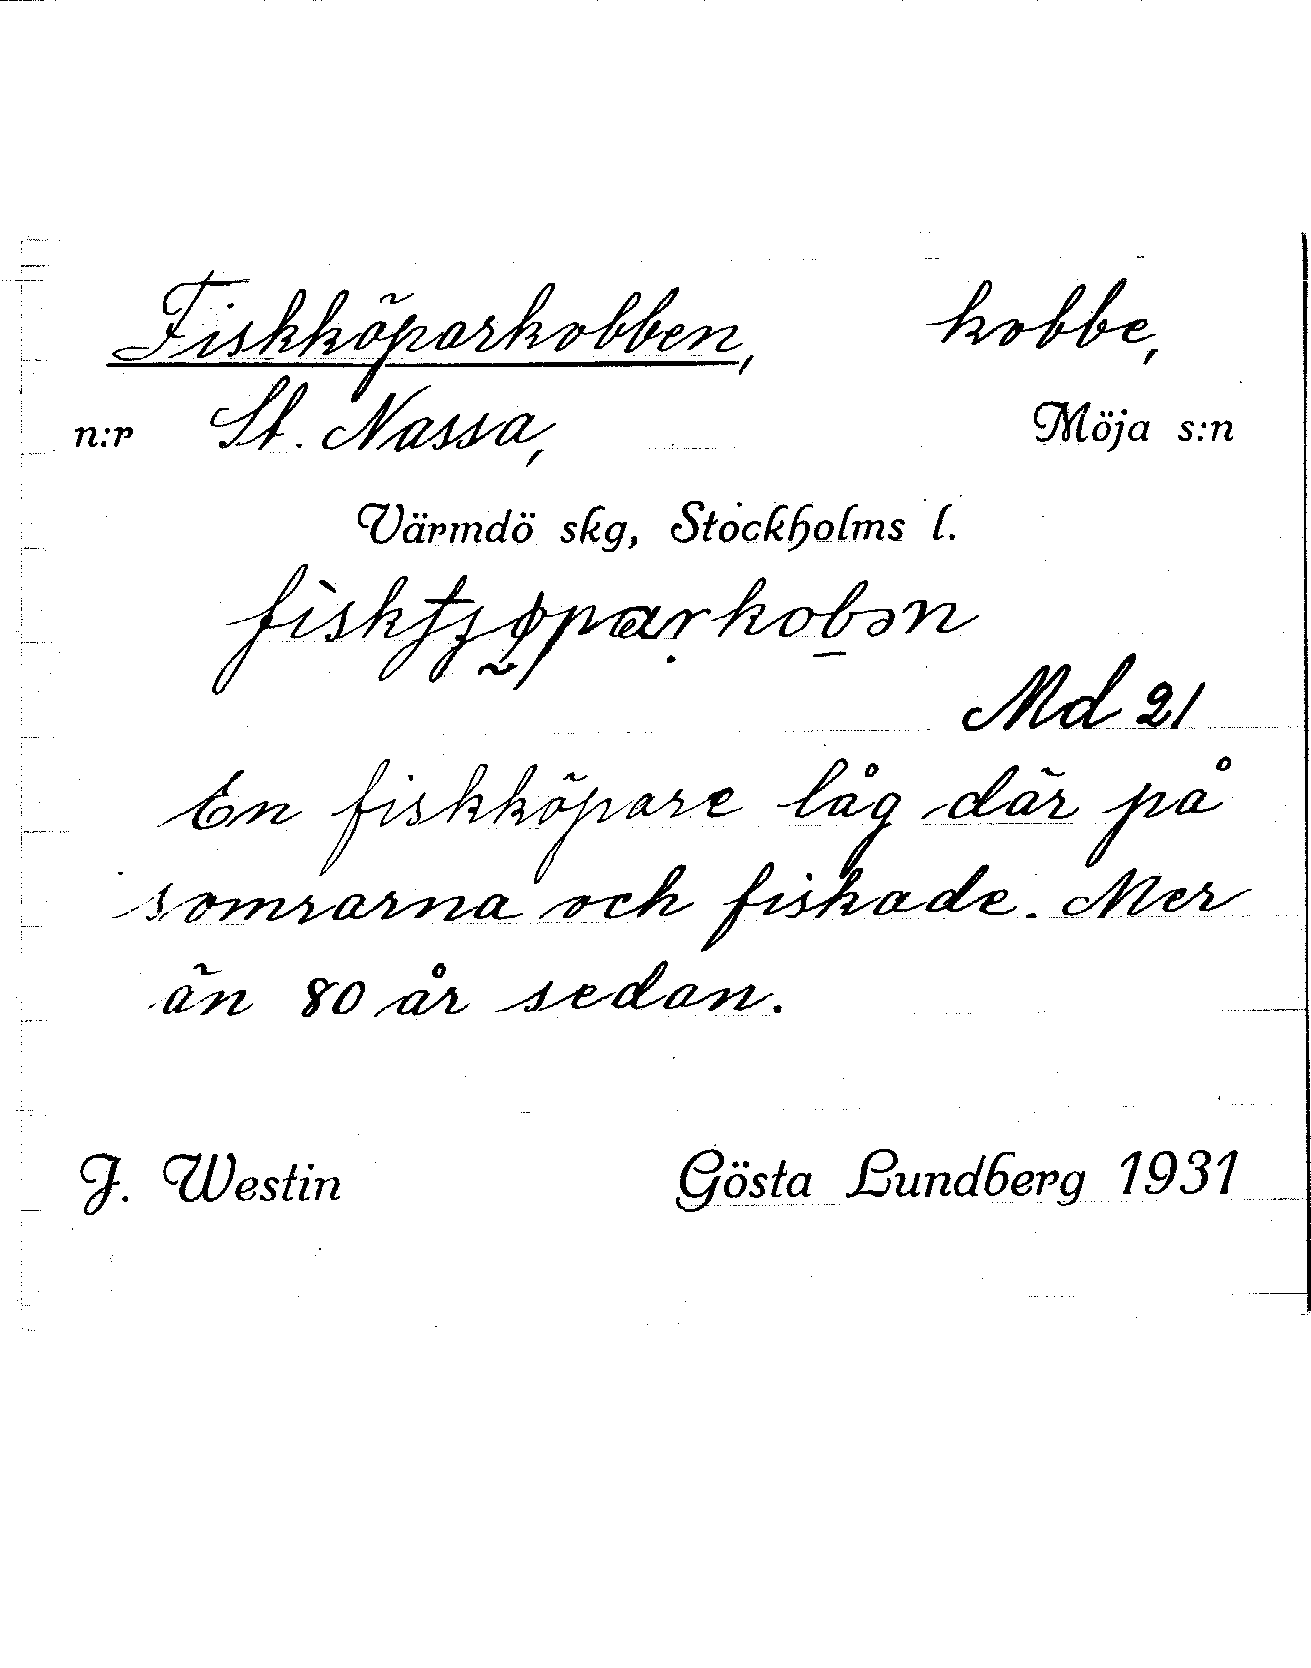 Fiskköparkobben, kobbe,
n:r St. Nassa, Möja s:n
Värmdö skg, Stockholms l.
En fiskköpare låg där på
somrarna och fiskade. Mer
än 80 år sedan.
Md 21
J. Westin Gösta Lundberg 1931